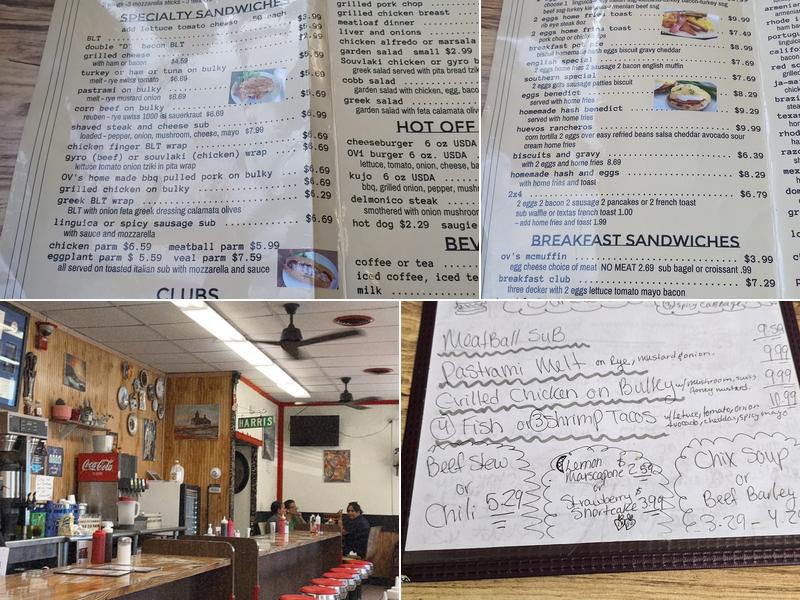 SPECIALTY SANDWICHES
add lettuce tomato cheese .50 each $3.99
BLT
double "D" bacon BLT
grilled cheese
with ham or bacon $4.59
turkey or ham or tuna on bulky
melt - rye swiss tomato $6.69
pastrami on bulky
melt - rye mustard onion $8.69
corn beef on bulky
reuben - rye swiss 1000 isl sauerkraut $8.69
shaved steak and cheese sub
loaded - pepper, onion, mushroom, cheese, mayo $7.99
chicken finger BLT wrap $6.69
gyro (beef) or souvlaki (chicken) wrap $6.69
lettuce tomato onion tziki in pita wrap
OV's home made bbq pulled pork on bulky $6.69
grilled chicken on bulky $6.69
greek BLT wrap $6.29
BLT with onion feta greek dressing calamata olives
linguica or spicy sausage sub $6.69
with sauce and mozzarella
chicken parm $6.59 meatball parm $5.99
eggplant parm $ 5.59 veal parm $7.59
all served on toasted italian sub with mozzarella and sauce
CLUBS
grilled pork chop
grilled chicken breast
meatloaf dinner
liver and onions
chicken alfredo or marsala
garden salad small $2.99
Souvlaki chicken or gyro b
greek salad served with pita bread tziki
cobb salad
garden salad with chicken, egg, bacon
greek salad
garden salad with feta calamata olives
HOT OFF
cheeseburger 6 oz USDA
OV1 burger 6 oz. USDA
lettuce, tomato, onion, cheese, ba
kujo 6 oz USDA
bbq, grilled onion, pepper, mush
delmonico steak
smothered with onion mushroom
hot dog $2.29 saugie
BEV
coffee or tea
iced coffee, iced tea
milk
2 eggs home fries toast
rib eye steak 8oz
2 eggs home fries toast $9.99
pork chop or chicken strips
breakfast pot pie $7.99
biscuit homefries eggs biscuit gravy cheddar
english special $8.99
2 eggs home fries 2 sausage 2 bacon english muffin
southern special $7.69
2 eggs grits sausage patties biscuit
eggs benedict $7.69
served with home fries
homemade hash benedict $8.29
served with home fries
huevos rancheros $9.29
corn tortilla 2 eggs over easy refried beans salsa cheddar avocado sour
cream home fries
$9.99
biscuits and gravy $6.39
with eggs and home fries 8.69
homemade hash and eggs $8.29
with home fries and toast
2x4 $6.79
2 eggs 2 bacon 2 sausage 2 pancakes or 2 french toast
sub waffle or texas french toast 1.00
- add home fries toast $1.99
BREAKFAST SANDWICHES
ov's mcmuffin $3.99
egg cheese choice of meat NO MEAT 2.69 sub bagel or croissant .99
breakfast club $7.29
three decker with 2 eggs lettuce tomato mayo bacon
Coca-Cola
HARRIS
Meatball Sub 9.59
Pastrami Melt on Rye, mustard & onion. 9.99
Grilled Chicken on Bulky w/ mushroom, swiss, honey mustard. 9.99
④ Fish or ③ Shrimp Tacos w/ lettuce, tomato, onion 10.99
avocado, cheddar, spicy mayo
Beef Stew
or
Chili 5.29
Lemon
Marscapone $2.59
or
Strawberry $
Shortcake 3.99
Chix Soup
or
Beef Barley